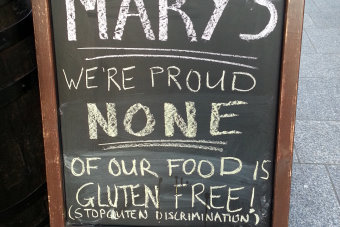 MARY'S
WE'RE PROUD
NONE
OF OUR FOOD IS
GLUTEN FREE!
(STOP GLUTEN DISCRIMINATION)